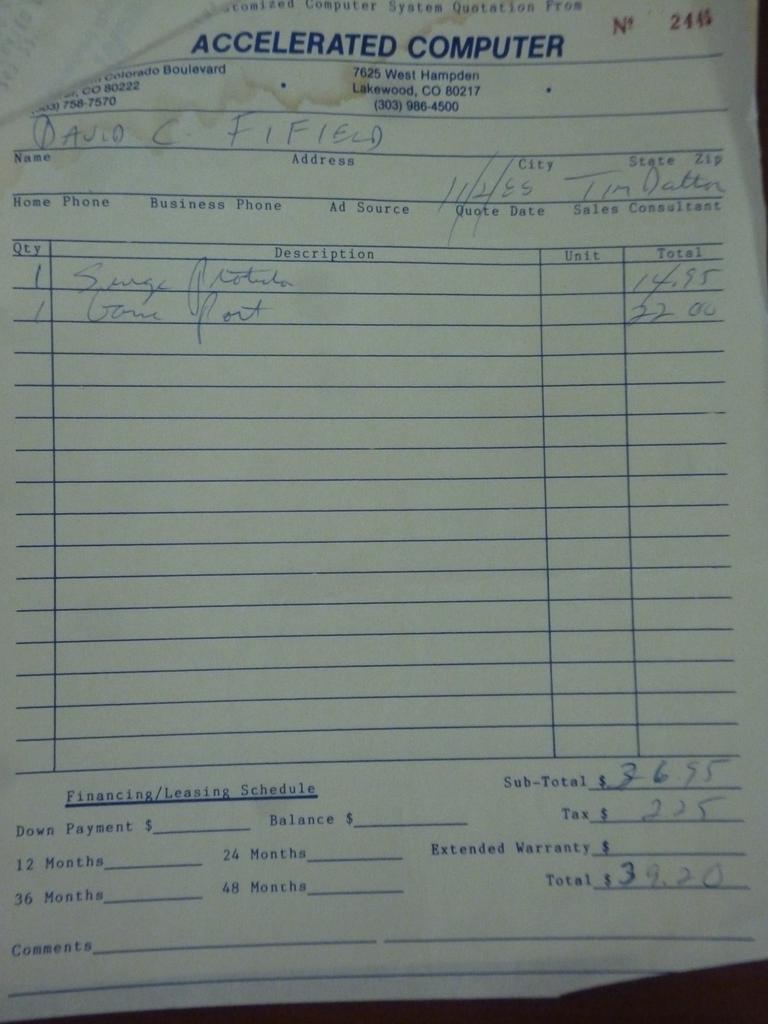 Customized Computer System Quotation From
Nº 244
ACCELERATED COMPUTER
Colorado Boulevard
7625 West Hampden
CO 80222
Lakewood, CO 80217
758-7570
(303) 986-4500
DAVID C. FIFIELD
Name Address City State Zip
11/2/88 Tim Dalton
Home Phone Business Phone Ad Source Quote Date Sales Consultant
Qty Description Unit Total
1 Surge Protector 14.95
1 Game Port 22 00
Sub-Total $ 36.95
Financing/Leasing Schedule
Tax $ 2 25
Down Payment $ Balance $
Extended Warranty $
12 Months 24 Months
Total $ 39.20
36 Months 48 Months
Comments